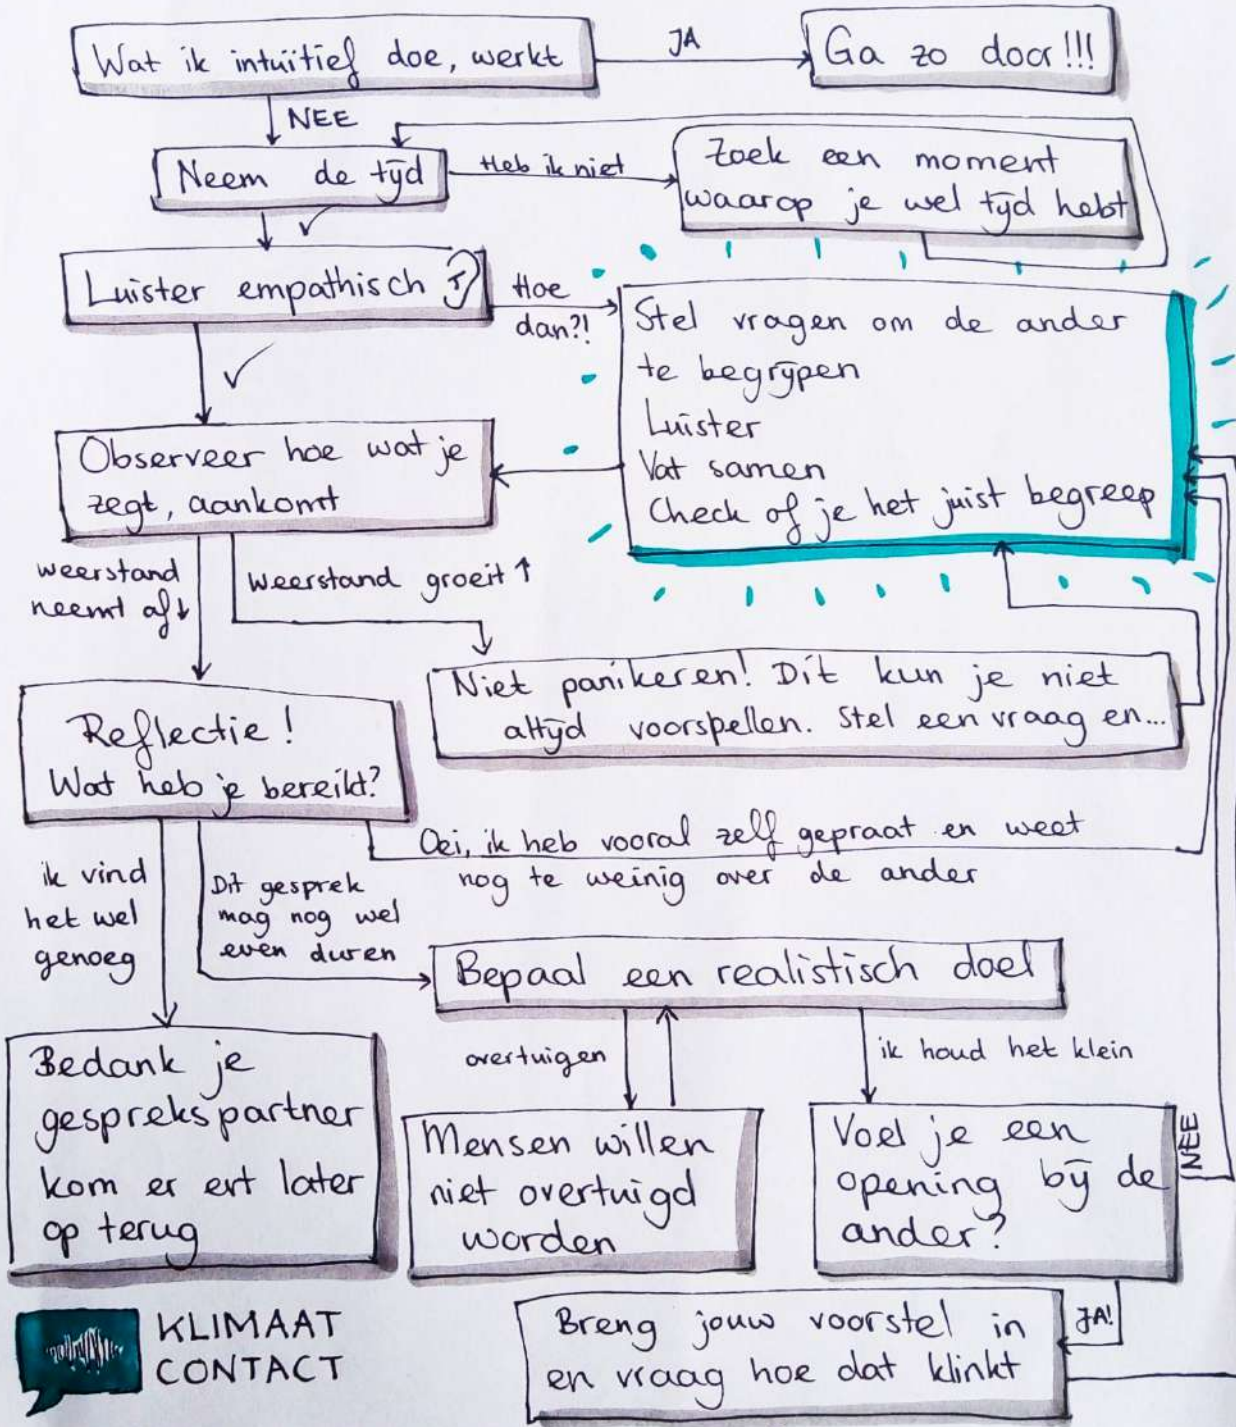 Wat ik intuïtief doe, werkt
JA
Ga zo door!!!
NEE
Neem de tijd
Heb ik niet
Zoek een moment
waarop je wel tijd hebt
Luister empathisch
Hoe
dan?!
Stel vragen om de ander
te begrijpen
Luister
Vat samen
Check of je het juist begreep
Observeer hoe wat je
zegt, aankomt
weerstand
neemt af↓
weerstand groeit ↑
Niet panikeren! Dit kun je niet
altijd voorspellen. Stel een vraag en...
Reflectie!
Wat heb je bereikt?
Oei, ik heb vooral zelf gepraat en weet
nog te weinig over de ander
ik vind
het wel
genoeg
Dit gesprek
mag nog wel
even duren
Bepaal een realistisch doel
overtuigen
ik houd het klein
Bedank je
gesprekspartner
kom er evt later
op terug
Mensen willen
niet overtuigd
worden
Voel je een
opening bij de
ander?
NEE
JA!
Breng jouw voorstel in
en vraag hoe dat klinkt
KLIMAAT
CONTACT